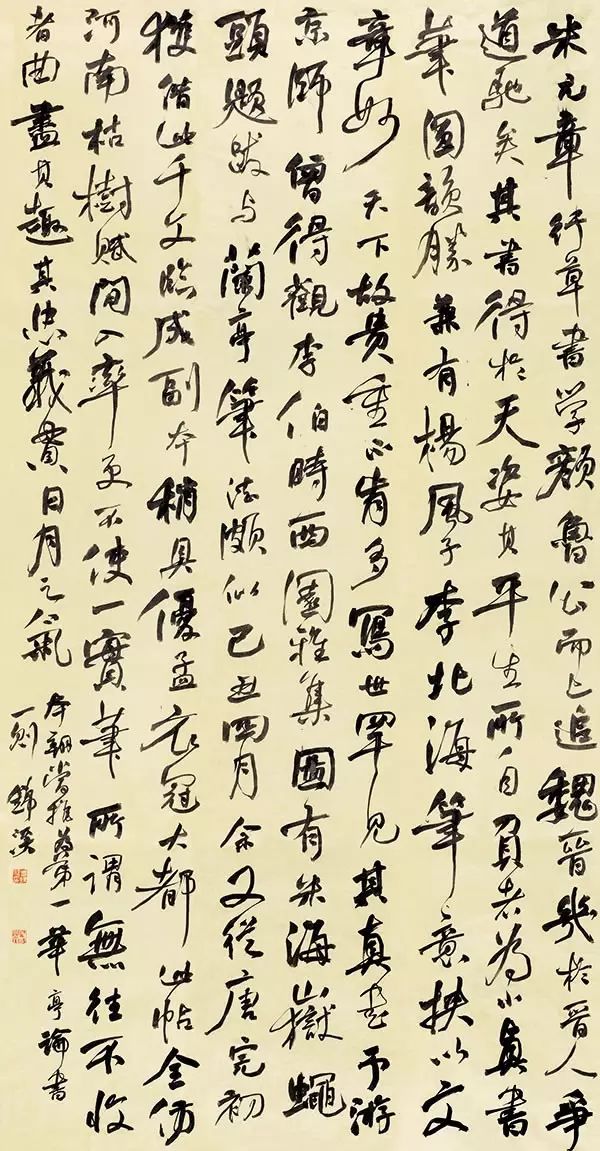 米元章行草书学颜鲁公而上追魏晋几於晋人争
道驰矣其书得於天姿其平生所自負者为小真書
筆圆韵勝兼有楊風子李北海筆意挟以文
章妙天下故贵重不肯多寫世罕見其真書予游
京師曾得觀李伯時西園雅集圖有米海嶽蠅
頭题跋与蘭亭筆法頗似己丑四月余又從唐完初
獲借此千文臨成副本稍具優孟衣冠大都此帖全仿
河南枯樹賦間入率更不使一實筆所謂無往不收
者曲盡其趣其忠義貫日月之气
本朝嘗推為第一華亭論書
一則 錦溪